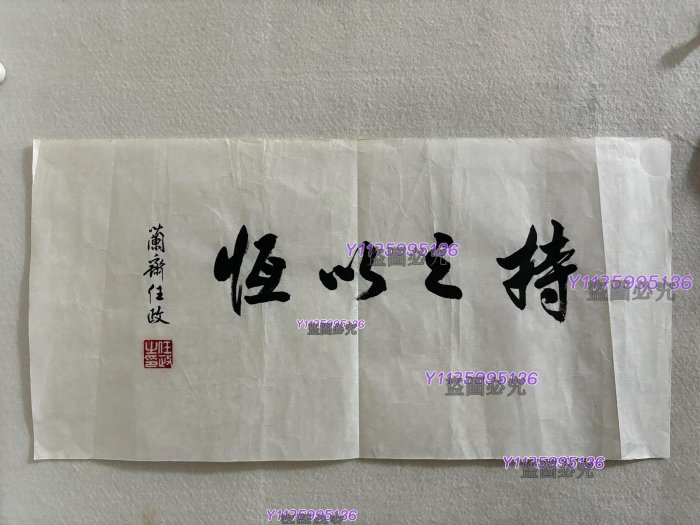 持之以恆
蘭齋任政
任政之印
Y1125995136
盜圖必究
Y1125995136
盜圖必究
Y1125995136
盜圖必究
Y1125995136
盜圖必究
Y1125995136
盜圖必究
Y1125995136
盜圖必究